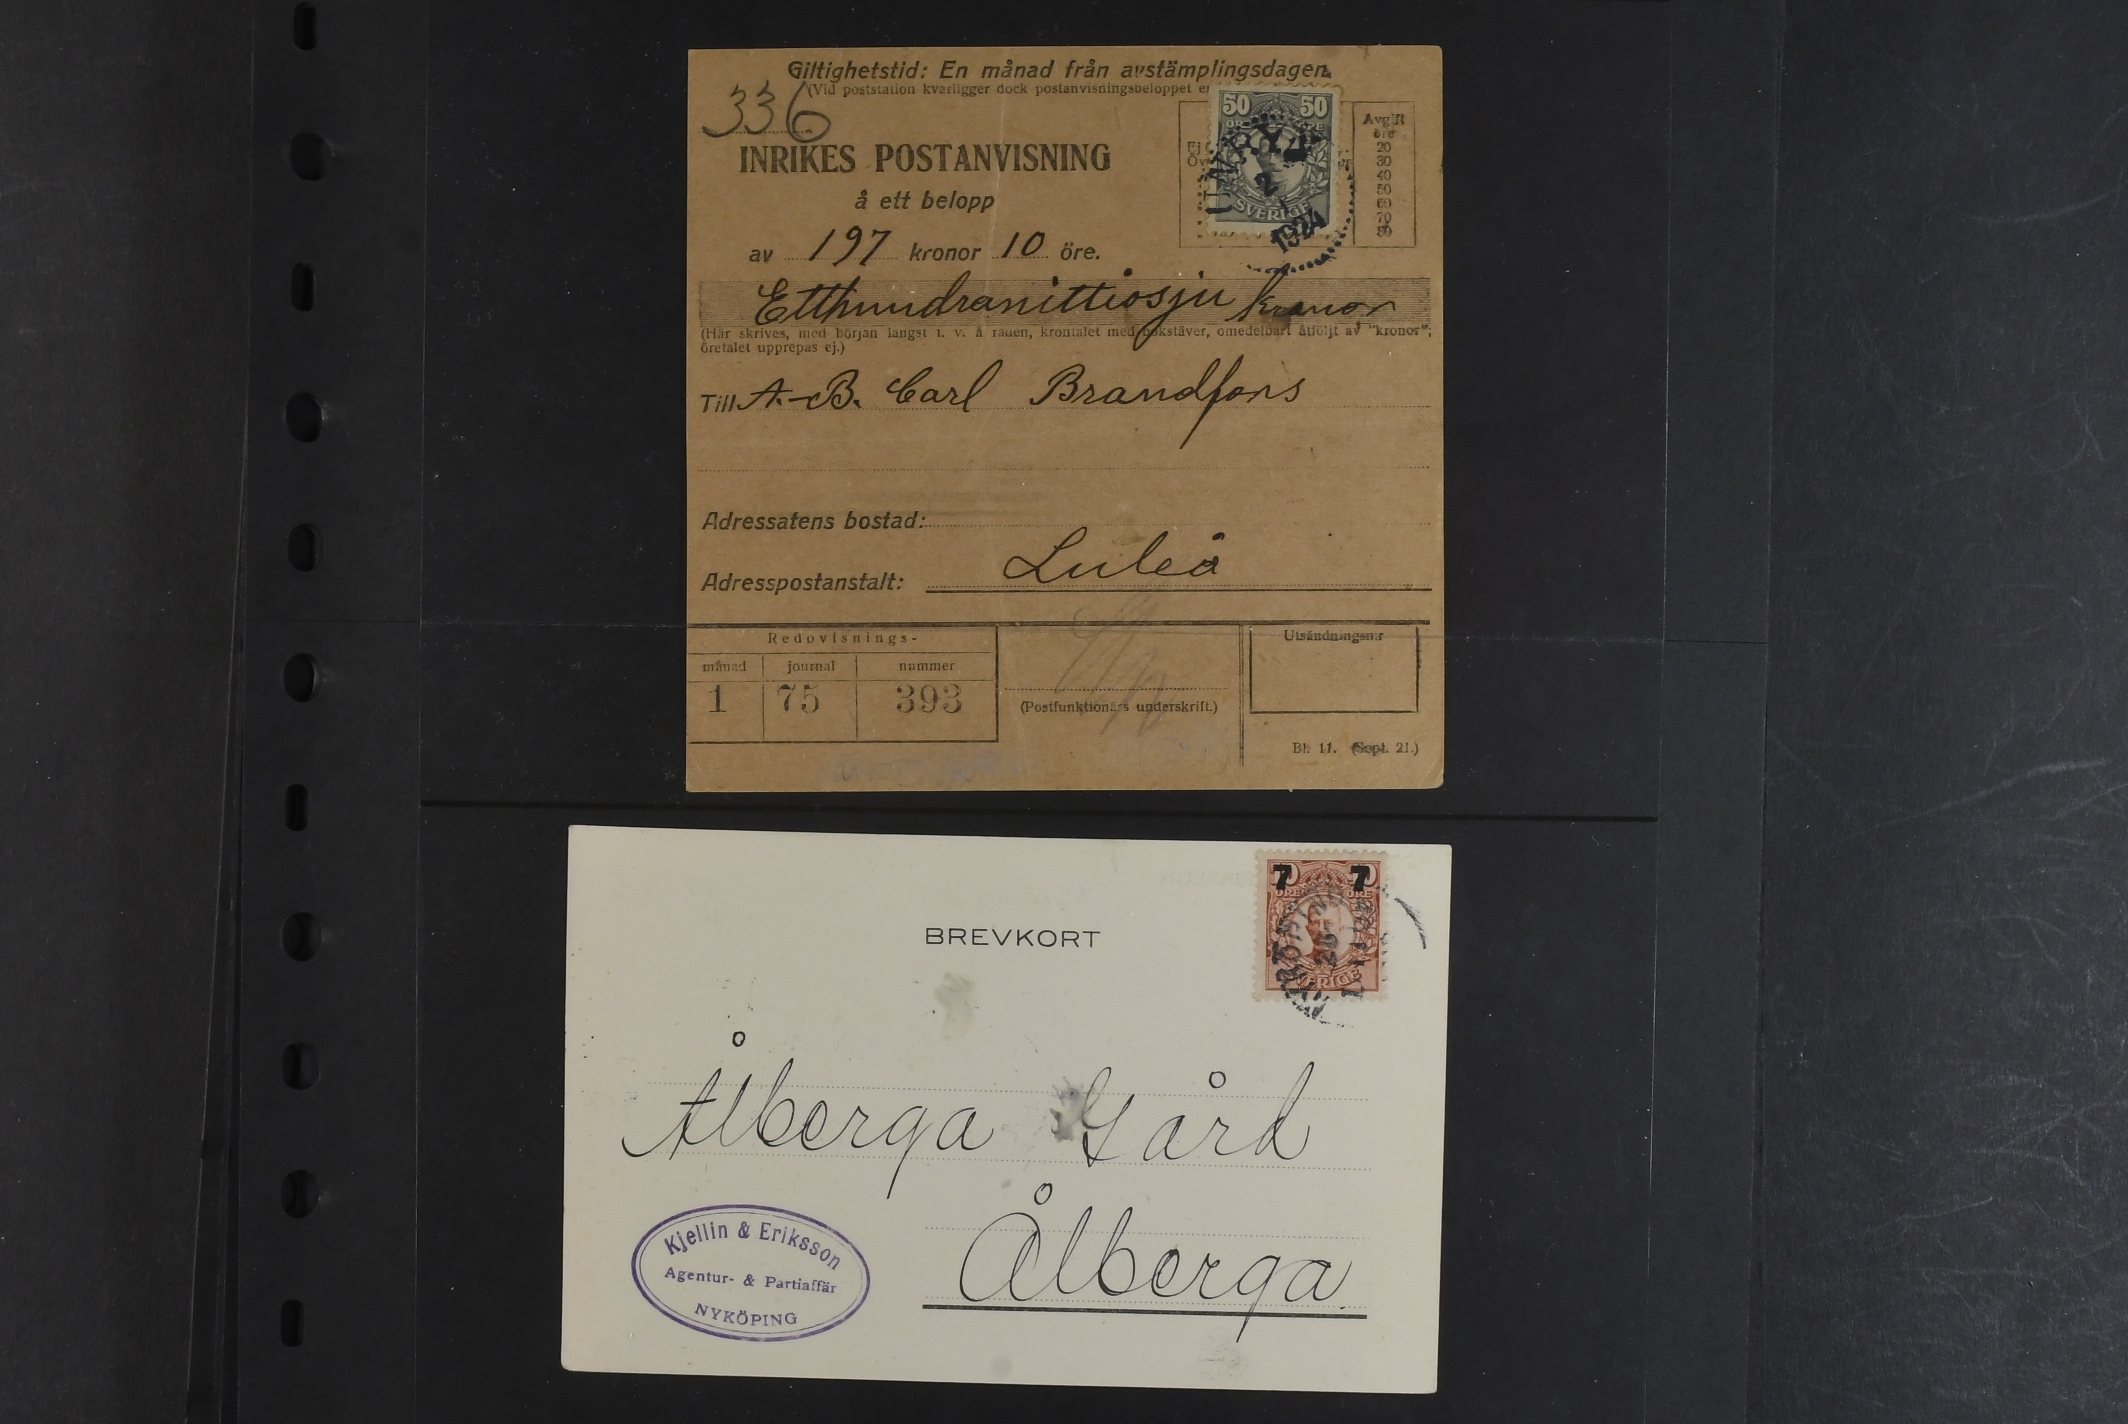 Giltighetstid: En månad från avstämplingsdagen.
(Vid poststation kvarligger dock postanvisningsbeloppet
336
50 50
ÖRE
SVERIGE
2
1
1924
Avgift
öre
20
30
40
50
60
70
80
INRIKES POSTANVISNING
å ett belopp
av 197 kronor 10 öre.
Etthundranittiosju kronor
(Här skrives, med början längst t. v. å raden, krontalet med bokstäver, omedelbart åtföljt av "kronor";
öretalet upprepas ej.)
Till A.-B. Carl Brandfors
Adressatens bostad:
Luleå
Adresspostanstalt:
Redovisnings-
månad journal nummer
1 75 393
(Postfunktionärs underskrift.)
Utsändningsnr
Bl. 11. (Sept. 21.)
7 7
ÖRE ÖRE
SVERIGE
NYKÖPING
BREVKORT
Ålberga Gård
Ålberga
Kjellin & Eriksson
Agentur- & Partiaffär
NYKÖPING